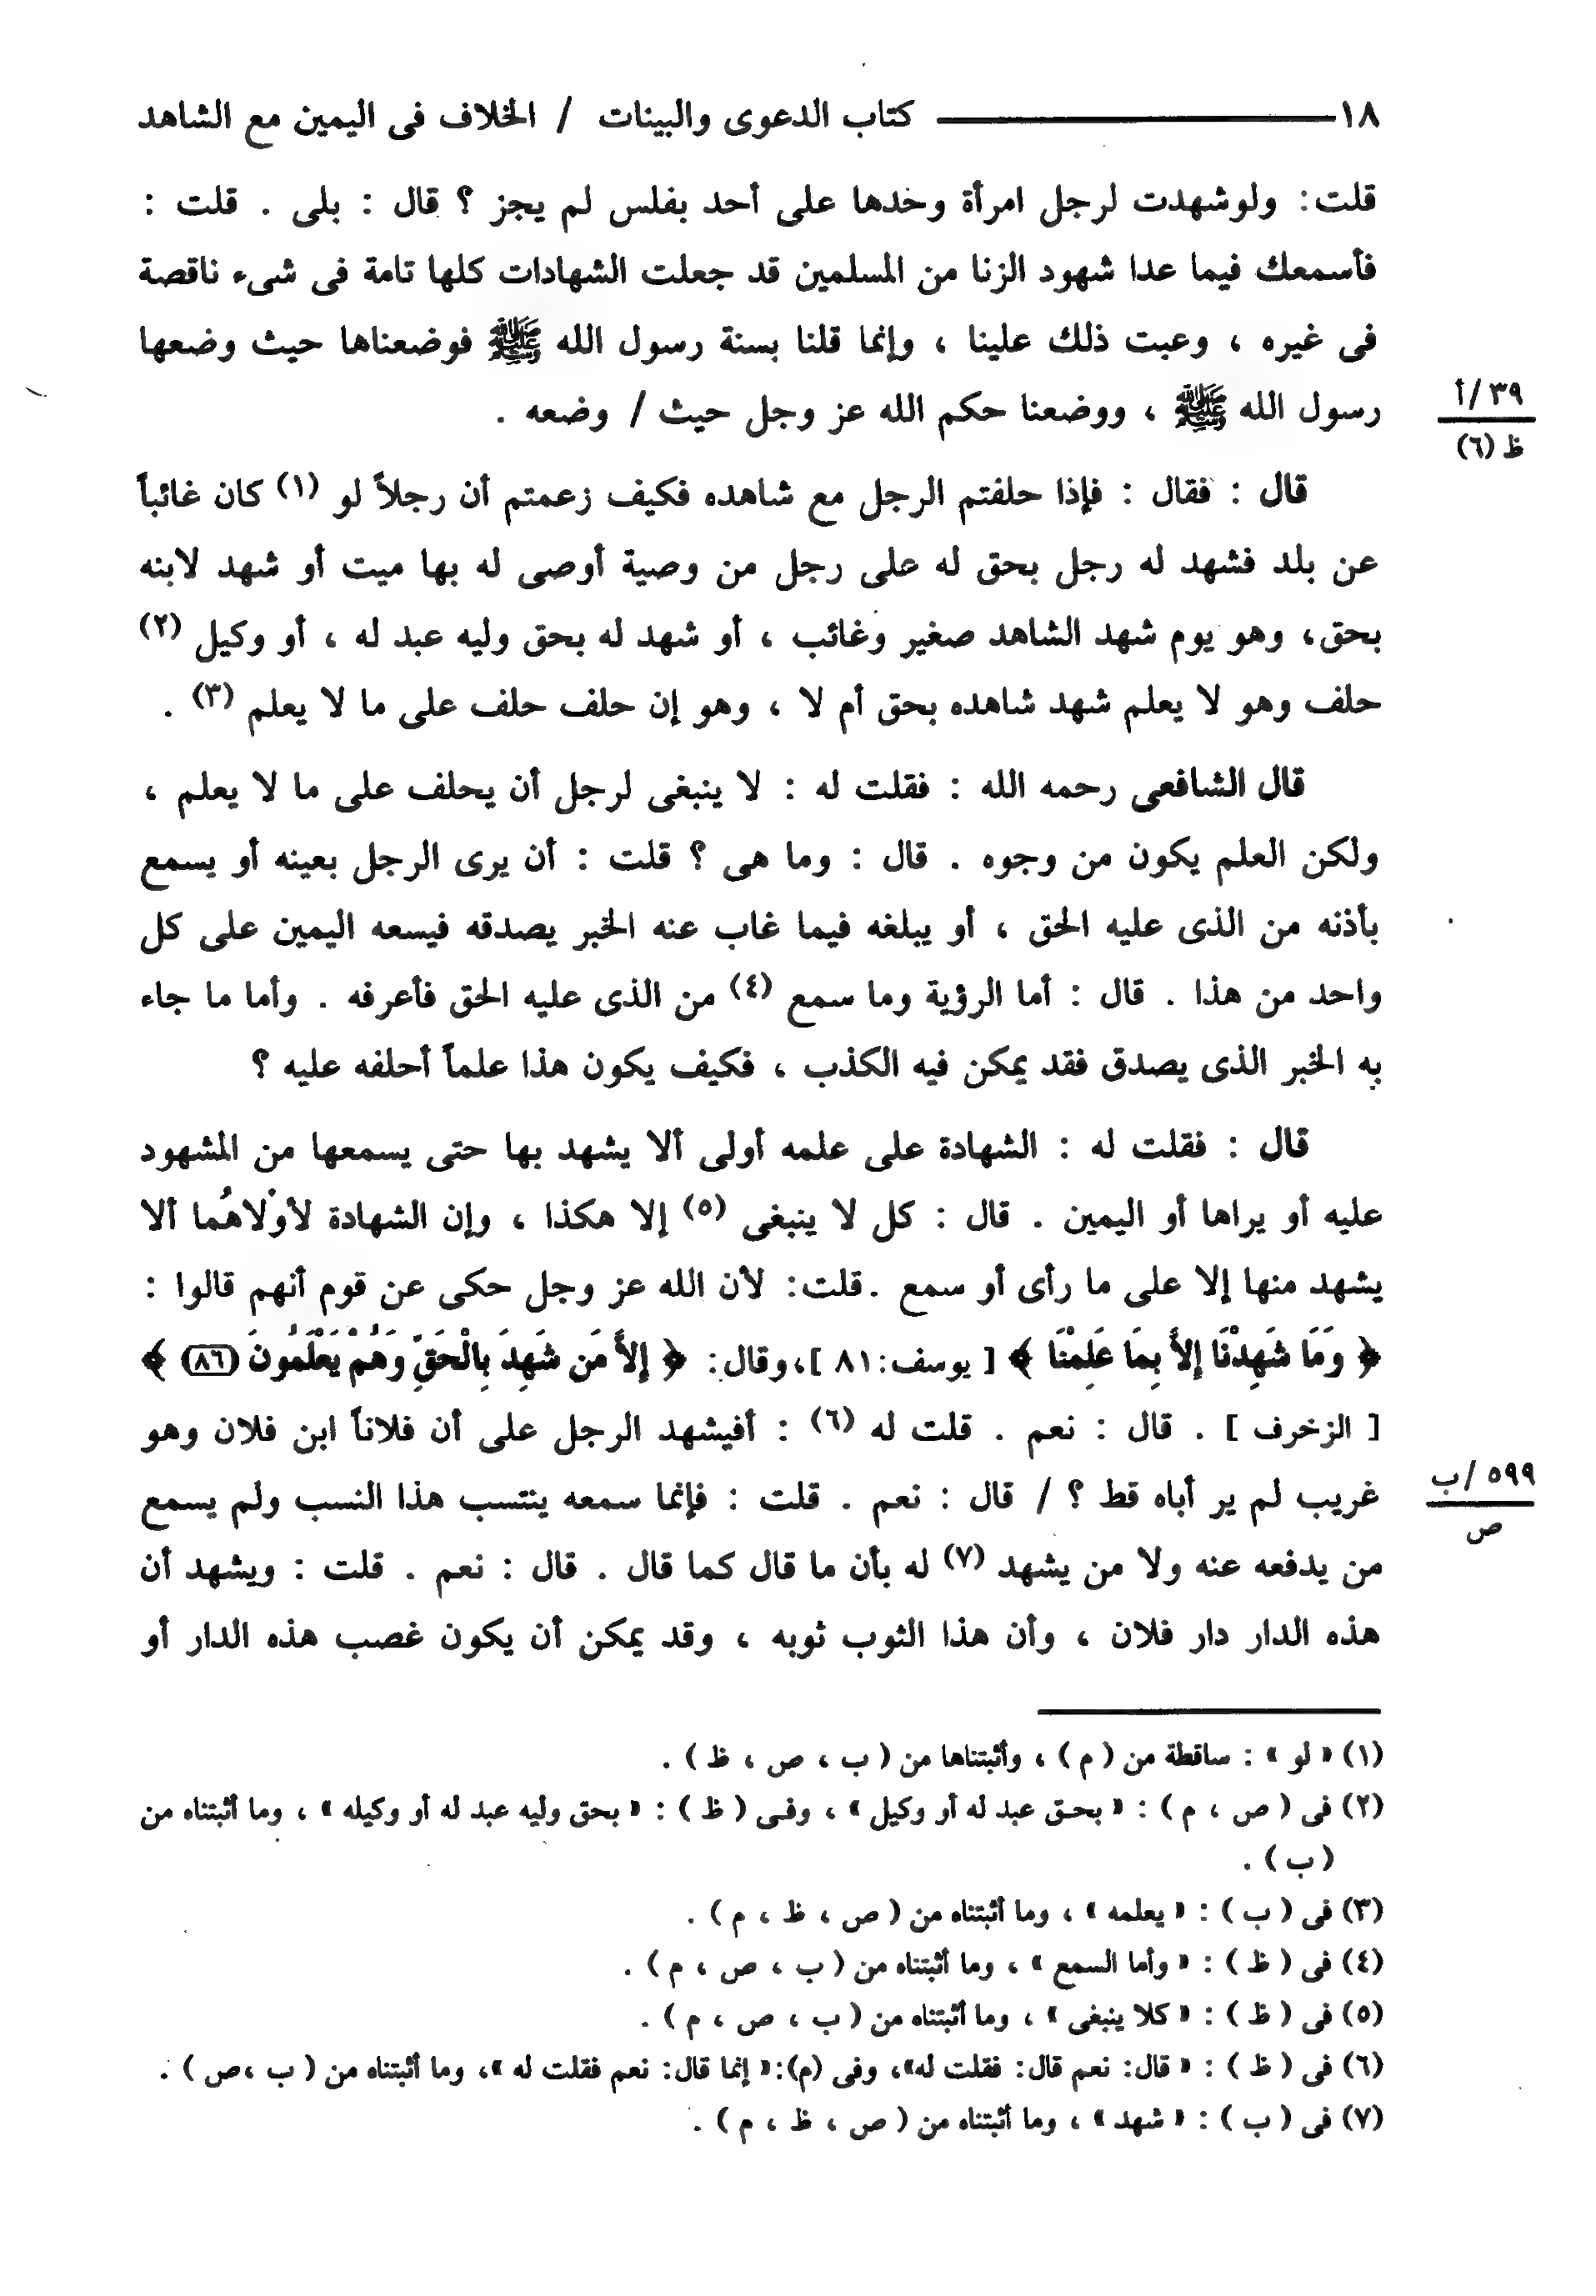 ١٨ كتاب الدعوى والبينات / الخلاف فى اليمين مع الشاهد
قلت: ولوشهدت لرجل امرأة وحدها على أحد بفلس لم يجز ؟ قال : بلى . قلت :
فأسمعك فيما عدا شهود الزنا من المسلمين قد جعلت الشهادات كلها تامة فى شىء ناقصة
فى غيره ، وعبت ذلك علينا ، وإنما قلنا بسنة رسول الله ﷺ فوضعناها حيث وضعها
رسول الله ﷺ ، ووضعنا حكم الله عز وجل حيث / وضعه .
٣٩/أ
ظ (٦)
قال : فقال : فإذا حلفتم الرجل مع شاهده فكيف زعمتم أن رجلاً لو (١) كان غائباً
عن بلد فشهد له رجل بحق له على رجل من وصية أوصى له بها ميت أو شهد لابنه
بحق، وهو يوم شهد الشاهد صغير وغائب ، أو شهد له بحق وليه عبد له ، أو وكيل (٢)
حلف وهو لا يعلم شهد شاهده بحق أم لا ، وهو إن حلف حلف على ما لا يعلم (٣) .
قال الشافعى رحمه الله : فقلت له : لا ينبغى لرجل أن يحلف على ما لا يعلم ،
ولكن العلم يكون من وجوه . قال : وما هى ؟ قلت : أن يرى الرجل بعينه أو يسمع
بأذنه من الذى عليه الحق ، أو يبلغه فيما غاب عنه الخبر يصدقه فيسعه اليمين على كل
واحد من هذا . قال : أما الرؤية وما سمع (٤) من الذى عليه الحق فأعرفه . وأما ما جاء
به الخبر الذى يصدق فقد يمكن فيه الكذب ، فكيف يكون هذا علماً أحلفه عليه ؟
قال : فقلت له : الشهادة على علمه أولى ألا يشهد بها حتى يسمعها من المشهود
عليه أو يراها أو اليمين . قال : كل لا ينبغى (٥) إلا هكذا ، وإن الشهادة لأوْلاهُما ألا
يشهد منها إلا على ما رأى أو سمع .قلت: لأن الله عز وجل حكى عن قوم أنهم قالوا :
﴿ وَمَا شَهِدْنَا إِلاَّ بِمَا عَلِمْنَا ﴾ [ يوسف: ٨١ ]، وقال: ﴿ إِلاَّ مَن شَهِدَ بِالْحَقِّ وَهُمْ يَعْلَمُونَ (٨٦) ﴾
[ الزخرف ] . قال : نعم . قلت له (٦) : أفيشهد الرجل على أن فلاناً ابن فلان وهو
غريب لم ير أباه قط ؟ / قال : نعم . قلت : فإنما سمعه ينتسب هذا النسب ولم يسمع
٥٩٩/ب
ص
من يدفعه عنه ولا من يشهد (٧) له بأن ما قال كما قال . قال : نعم . قلت : ويشهد أن
هذه الدار دار فلان ، وأن هذا الثوب ثوبه ، وقد يمكن أن يكون غصب هذه الدار أو
(١) « لو » : ساقطة من ( م ) ، وأثبتناها من ( ب ، ص ، ظ ) .
(٢) فى ( ص ، م ) : « بحق عبد له أو وكيل » ، وفى ( ظ ) : « بحق وليه عبد له أو وكيله » ، وما أثبتناه من
( ب ) .
(٣) فى ( ب ) : « يعلمه » ، وما أثبتناه من ( ص ، ظ ، م ) .
(٤) فى ( ظ ) : « وأما السمع » ، وما أثبتناه من ( ب ، ص ، م ) .
(٥) فى ( ظ ) : « كلا ينبغى » ، وما أثبتناه من ( ب ، ص ، م ) .
(٦) فى ( ظ ) : « قال: نعم قال: فقلت له»، وفى (م):« إنما قال: نعم فقلت له »، وما أثبتناه من ( ب ،ص ) .
(٧) فى ( ب ) : « شهد » ، وما أثبتناه من ( ص ، ظ ، م ) .